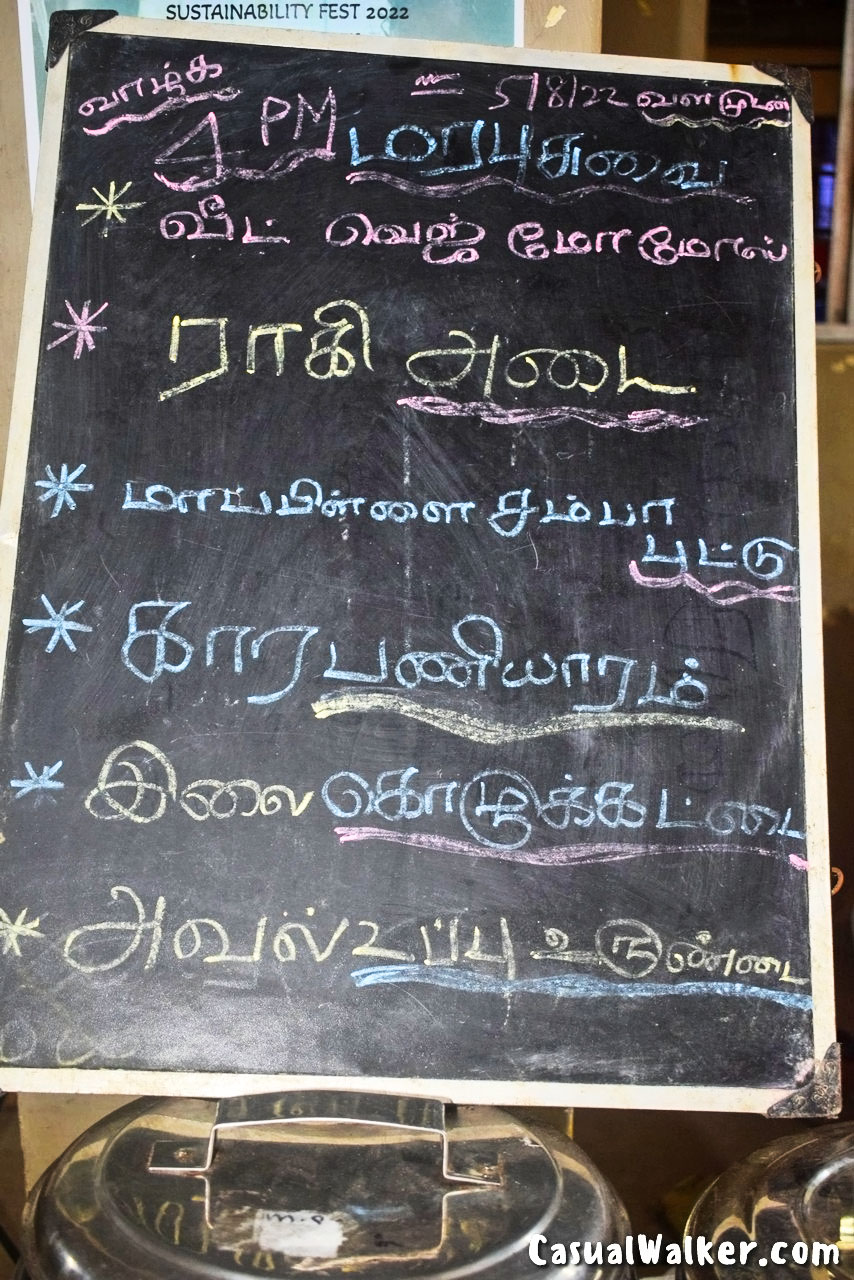 SUSTAINABILITY FEST 2022
வாழ்க 5/8/22 வளமுடன்
4 PM மரபுசுவை
* வீட் வெஜ் மோமோஸ்
* ராகி அடை
* மாப்பிள்ளை சம்பா
புட்டு
* காரபணியாரம்
* இலை கொழுக்கட்டை
* அவல் உப்பு உருண்டை
CasualWalker.com